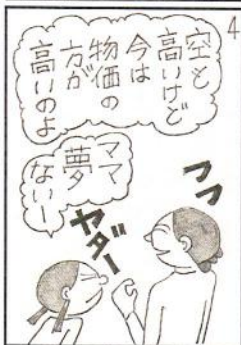 4
空も
高いけど
今は
物価の
方が
高いのよ
フフ
ママ
夢
ないー
ヤダー